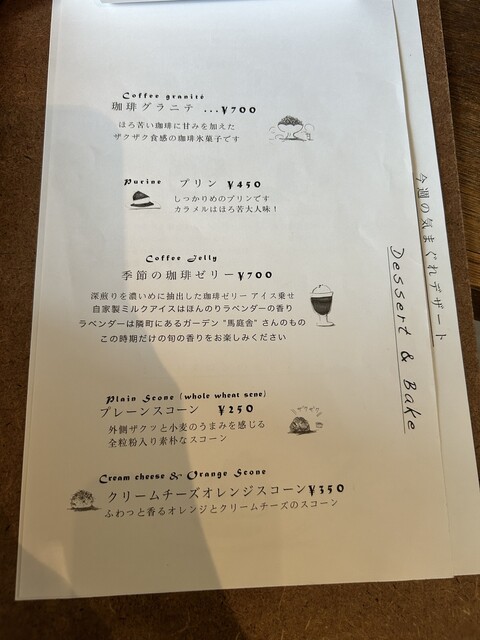 Coffee granité
珈琲グラニテ ...¥700
ほろ苦い珈琲に甘みを加えた
ザクザク食感の珈琲氷菓子です
Purine プリン ¥450
しっかりめのプリンです
カラメルはほろ苦大人味!
Coffee Jelly
季節の珈琲ゼリー¥700
深煎りを濃いめに抽出した珈琲ゼリー アイス乗せ
自家製ミルクアイスはほんのりラベンダーの香り
ラベンダーは隣町にあるガーデン "馬庭舎" さんのもの
この時期だけの旬の香りをお楽しみください
Plain Scone (whole wheat scne)
プレーンスコーン ¥250
外側ザクッと小麦のうまみを感じる
全粒粉入り素朴なスコーン
Cream cheese & Orange Scone
クリームチーズオレンジスコーン¥350
ふわっと香るオレンジとクリームチーズのスコーン
今週の気まぐれデザート
Dessert & Bake